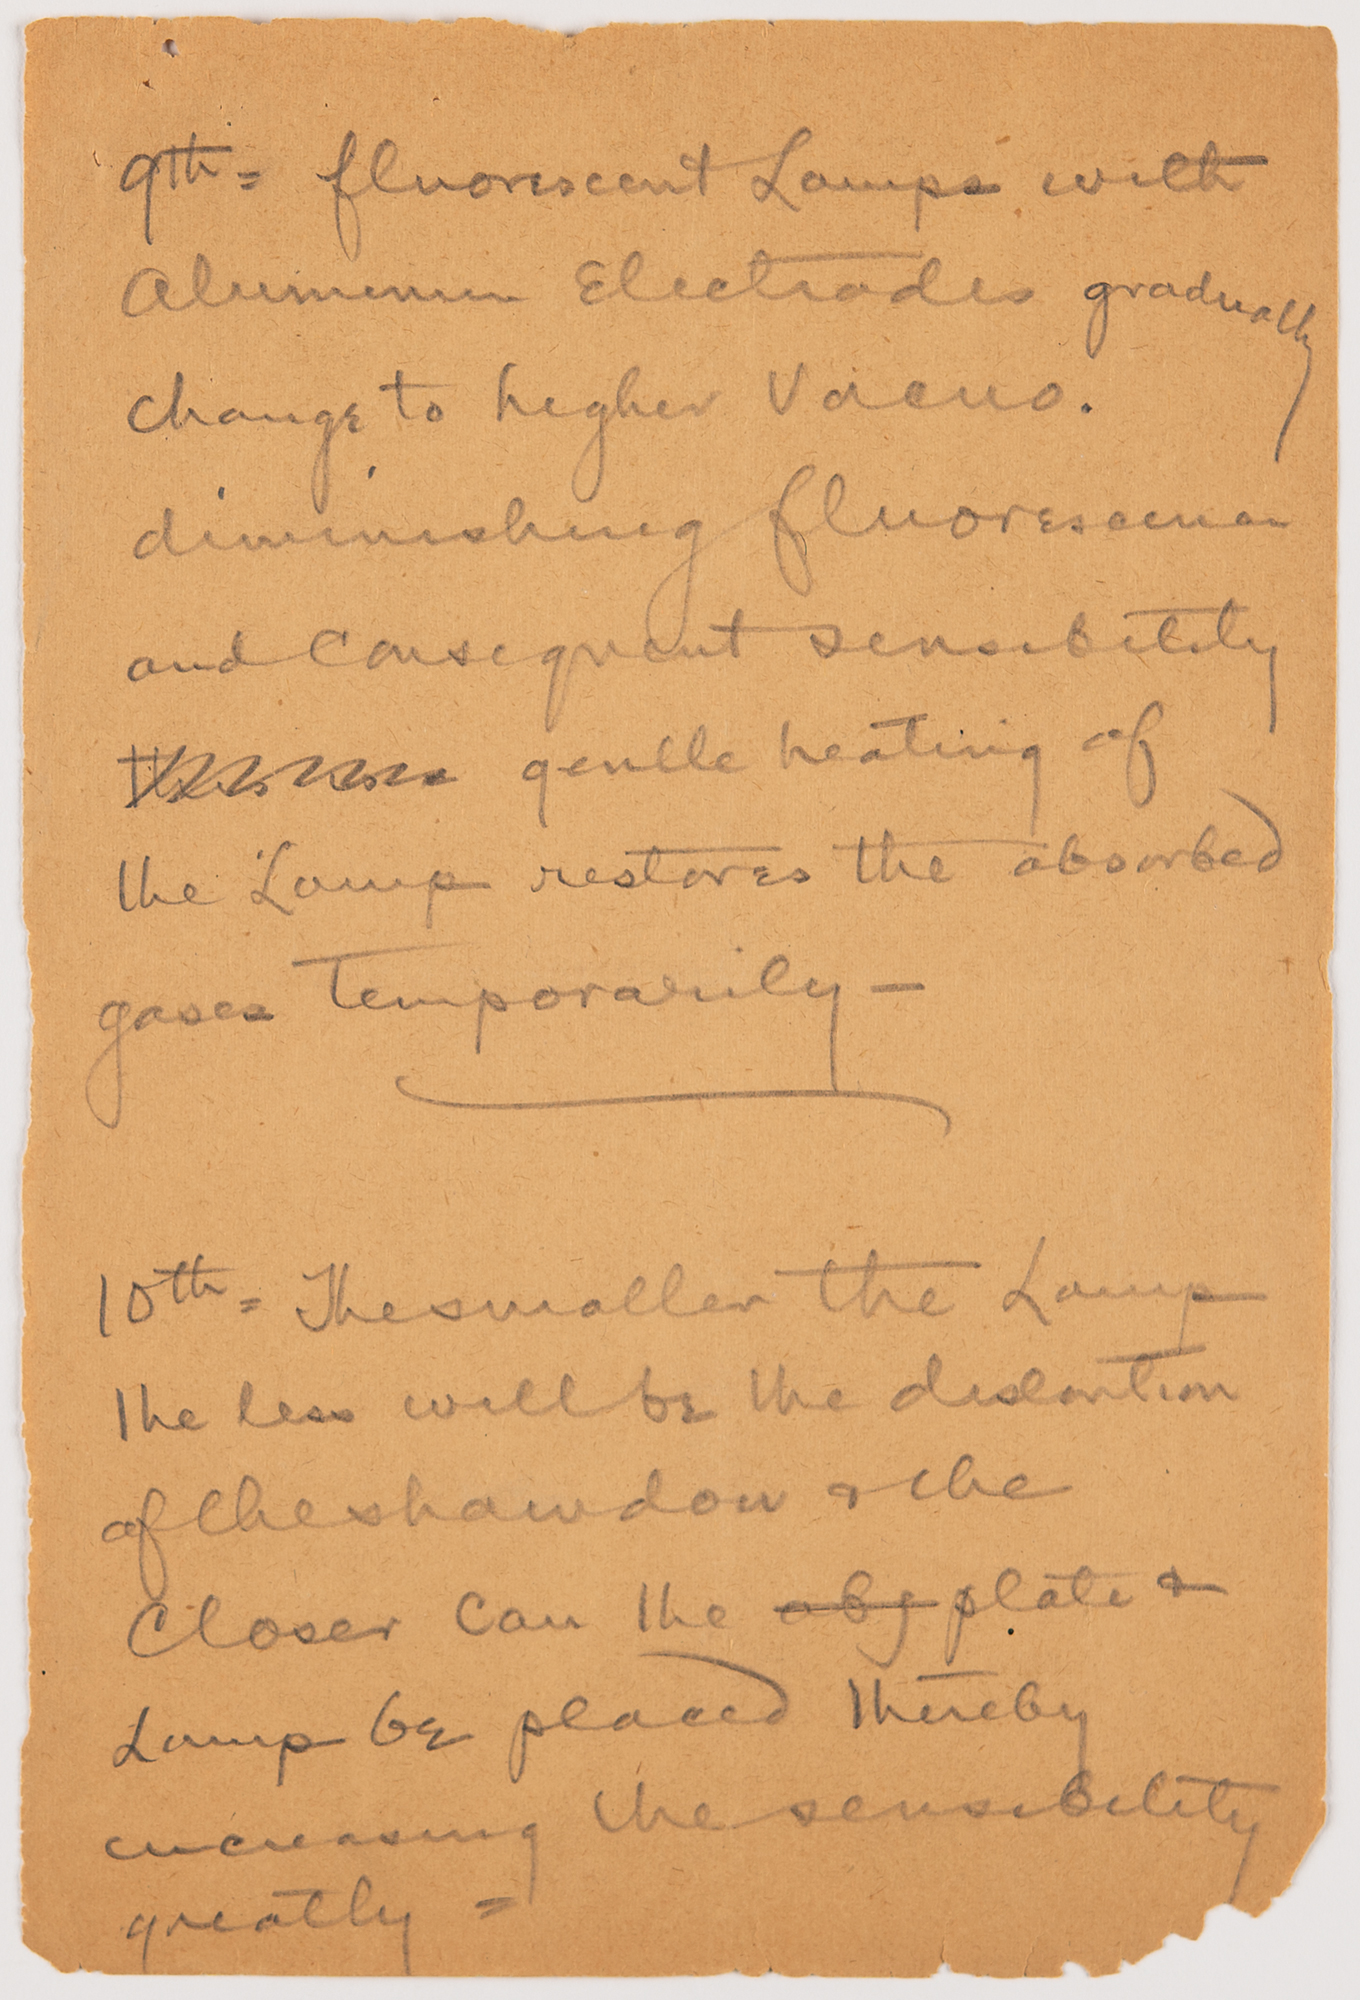 9th = fluorescent Lamps with
Aluminum Electrodes gradually
change to higher Vacuo.
diminishing fluorescence
and Consequent sensibility
gentle heating of
the Lamp restores the absorbed
gases temporarily —
10th = The smaller the Lamp
the less will be the distortion
of the shawdow & the
Closer Can the obj plate &
Lamp be placed thereby
increasing the sensibility
greatly =